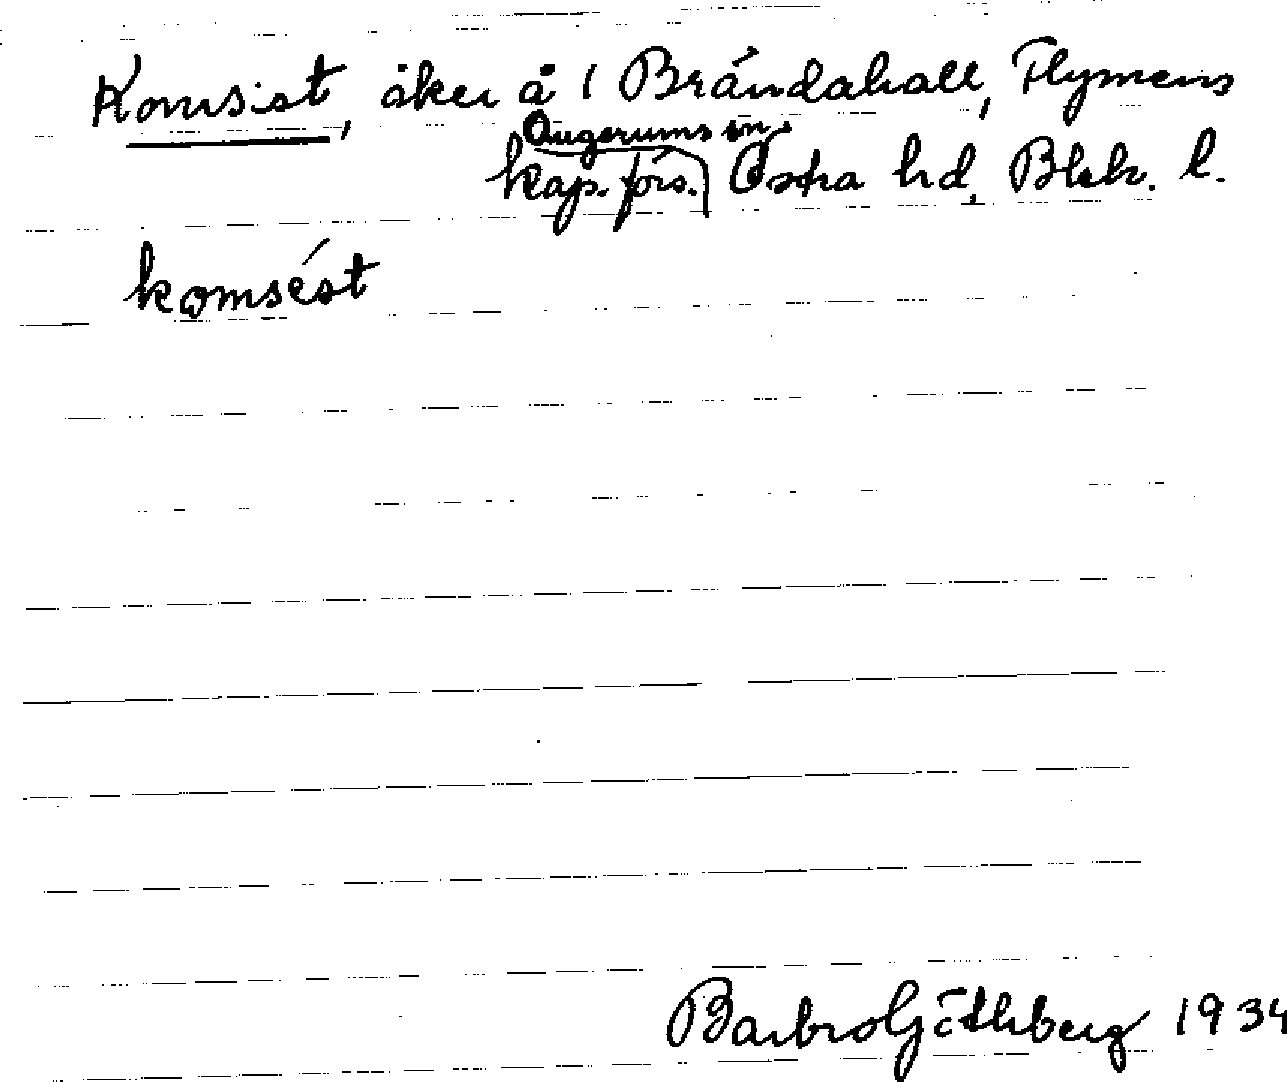 Komsist, åker å 1 Brändahall, Flymens
Augerums sn,
kap. förs. Östra hd, Blek. l.
komsést
Barbro Göthberg 1934